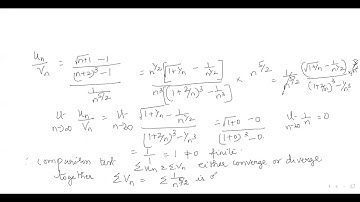 u_n/v_n = ((√(n+1) - 1)/((n+2)^3 - 1))/(1/n^{5/2}) = n^{1/2}[√(1+1/n) - 1/n^{1/2}] / n^3[(1+2/n)^3 - 1/n^3] × n^{5/2} =
lt n→∞ u_n/v_n = lt n→∞ (√(1+1/n) - 1/n^{1/2})/((1+2/n)^3 - 1/n^3) = (√(1+0) - 0)/((1+0)^3 - 0) lt n→∞ 1/n = 0
= 1/1 = 1 ≠ 0 finite.
∴ comparison test Σu_n & Σv_n either converge or diverge
together Σv_n = Σ 1/n^{5/2} is of